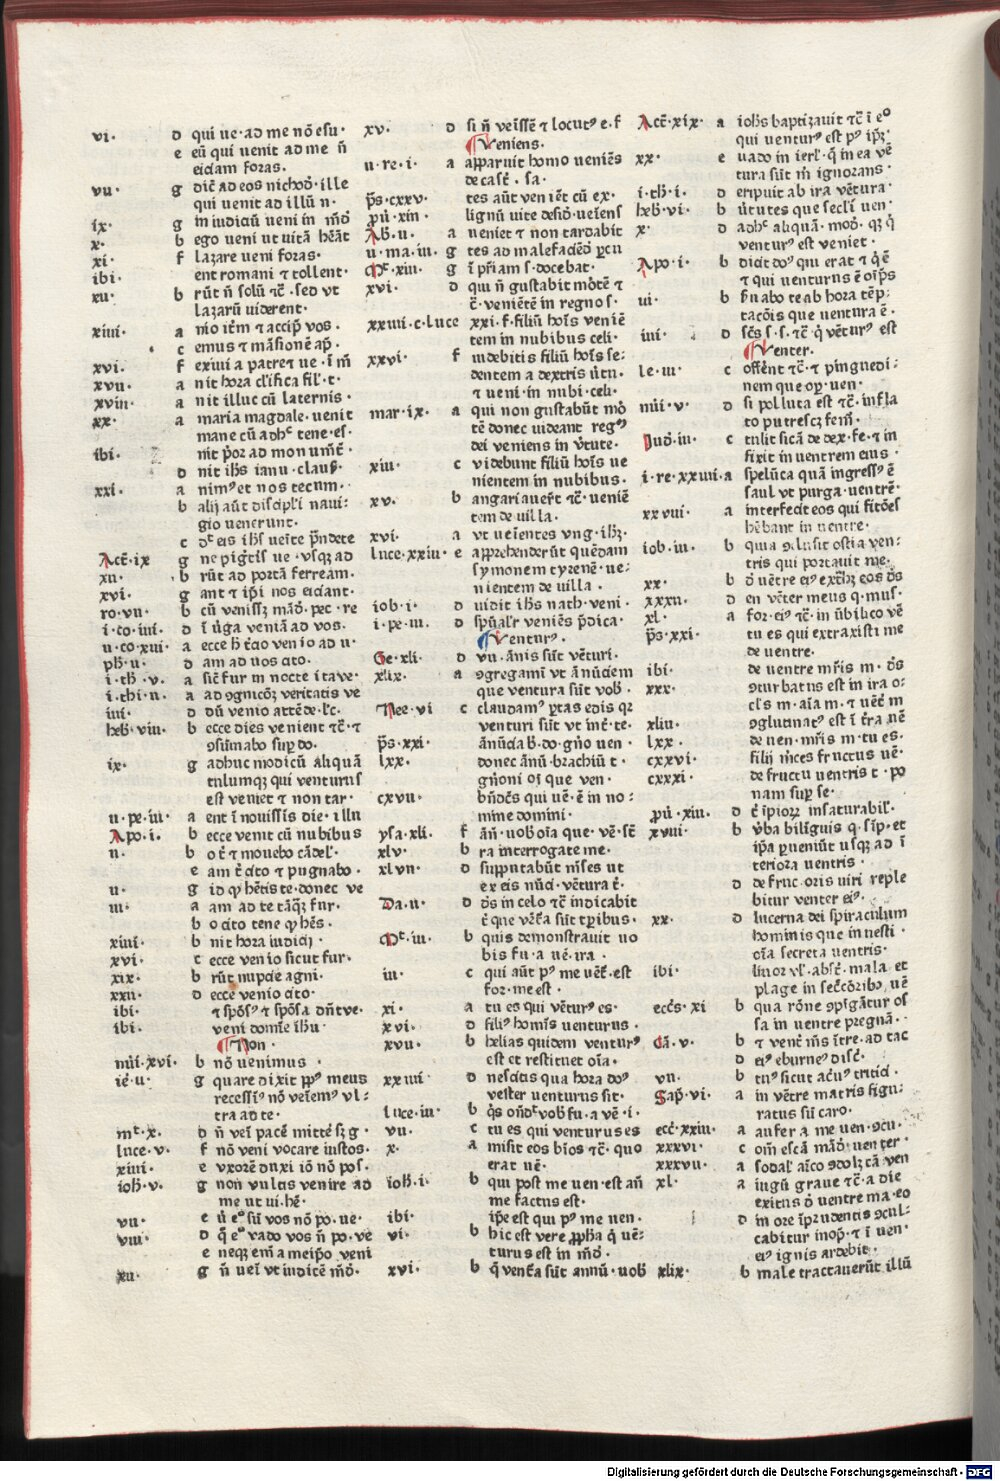 vi. d qui ue. ad me nō esu.
e eū qui uenit ad me n̄
eiciam foras.
vii. g dic̄ ad eos nichod̄. ille
qui uenit ad illū n.
ix. g in iudiciū ueni in mōd
x. b ego ueni ut uitā hēāt
xi. f lazare ueni foras.
ibi. ent romani ⁊ tollent.
xii. b rūt n̄ solū ⁊c̄. sed vt
lazarū uiderent.
xiiii. a nio iteꝝ ⁊ accip̄ vos.
c emus ⁊ māsionē ap̄.
xvi. f exiui a patre ⁊ ue. ī m̄
xvii. a nit hora cl'ifica fil'. t.
xviii. a nit illuc cū laternis.
xx. a maria magdale. uenit
mane cū adhᶜ tene. es.
ibi. nit p̄or ad monum̄t.
d nit ihs ianu. clauſ.
xxi. a nimꝰ et nos tecum.
b alij aūt discip̄l'i naui.
gio uenerunt.
c dᵗ eis ihs ueīte p̄ndete
Act̄. ix g ne pigt̄is ue. vsqꝫ ad
xii. b rūt ad portā ferream.
xvi. g ant ⁊ ip̄i nos eiciant.
ro. vii. b cū venissꝫ mād̄. pec. re
i. co. iiii. d ī ūga veniā ad vos.
ii. co. xiii. a ecce h̄ t̄cio venio ad u.
ph. ii. d am ad uos cito.
i. th. v. a sic̄ fur in nocte ita ve.
i. thi. ii. a ad ꝯgnicōꝫ veritatis ve
iiii. d dū venio attēde. l'c̄.
heb̄. viii. b ecce dies venient ⁊c̄. ⁊
ꝯsūmabo sup̄ do.
ix. g adhuc modicū aliquā
tulumqꝫ qui venturus
est veniet ⁊ non tar.
ii. pe. iii. a ent ī nouissīs die. illu
Apo. i. b ecce venit cū nubibus
ii. b o t̄ ⁊ mouebo cādel'.
e am t̄ cito ⁊ pugnabo.
ii. g id qͥ hētis te. donec ve
iii. a am ad te tāqꝫ fur.
b o cito tene qͥ hēs.
xiiii. b nit hora iudicij.
xvi. c ecce venio sicut fur.
xix. b rūt nuptie agni.
xxii. d ecce venio cito.
ibi. ⁊ spōsꝰ ⁊ spōsa dn̄t ve.
ibi. veni domīe ihū.
Non.
nūi. xvi. b nō uenimus.
ie͛. ii. g quare dixit pp̄ꝰ meus
recessīꝰ nō veīemꝰ vl.
tra ad te.
mᵗ. x. d n̄ veī pacē mittē sꝫ g.
luce. v. f nō veni vocare iustos.
xiiii. e vxorē duxi iō nō pos.
ioh̄. v. g non vultis venire ad
me ut ui. hē.
vii. e ū eᵒ sū vos nō po. ue.
viii. d q̄ eᵒ vado vos n̄ po. ve
e neqꝫ em̄ a meip̄o veni
xii. g n̄ ueī vt iudicē mōd̄.
xv. d si n̄ veīssē ⁊ locutꝰ e. f
Veniens.
ii. re. i. a apparuit homo ueniēs
de cast̄. sa.
p̄s. cxxv. tes aūt ven iēt cū ex.
p̄ū. xiii. lignū uite desid̄. ueīens
Ab̄. ii. a ueniet ⁊ non tardabit
ii. ma. iii. g tes ad malefaciēd̄ ꝑcu
Mᶜ. xiii. g ī p̄riam s. docebat.
xvi. d qui n̄ gustabit mōtē ⁊
c̄ veniētē in regno s.
xxiiii. c. luce xxi. f. filiū hoīs veniē
tem in nubibus celi.
xxvi. f iudebitis filiū hoīs se.
dentem a dextris ūtu.
⁊ ueni. in nubi. celi.
mar. ix. a qui non gustabūt mō
tē donec uideant regꝰ
dei veniens in v̄tute.
xiii. c videbunt filiū hoīs ue
nientem in nubibus.
xv. b angariauer̄t ⁊c̄. ueniē
tem de uilla.
xvi. a vt ueīentes vng. ihꝫ.
luce. xxiii. e apprehenderūt quēdam
symonem tyrenē. ue.
nientem de uilla.
iob. i. d uidit ihs nath. veni.
i. pe. iii. d sp̄ual'r veniēs p̄dica.
Venturꝰ.
Ge. xli. d vii. ānis sūt vēturi.
xlix. a ꝯgregamī vt ānūciem
que ventura sūt vob̄.
Nee. vi c claudamꝰ ꝑtas edis qꝛ
venturi sūt vt int̄. te.
p̄s. xxi. ānūciab̄. do. gn̄o uen.
lxx. donec ānū. brachiū t.
gn̄oni oī que ven.
cxvii. bn̄dc̄s qui uē. ē in no.
mine domini.
ysa. xli. f ān̄. uob̄ oīa que. vē. st̄
xlv. b ra interrogate me.
xlvii. d supputabūt mēses ut
ex eis nūci. vētura t̄.
Da. ii. d ds̄ in celo ⁊c̄ indicabit
t̄ que vēt̄a sūt tꝑibus.
Mᵗ. iii. b quis demonstrauit uo
bis fu. a uē. ira.
iii. c qui aūt pꝰ me uēt̄. est
for. me est.
xi. a tu es qui vēturꝰ es.
xvi. d filiꝰ homīs uenturus.
xvii. b helias quidem venturꝰ
est et restituet oīa.
xxiiii d nescitis qua hora doꝰ
vester uenturus sit.
luce. iii. b q̄s ond̄ᵗ vob̄ fu. a vē. i.
vii. c tu es qui venturus es
x. a misit eos bīos ⁊c̄. quo
erat uē.
ioh̄. i. b qui post me uen. est an̄
me factus est.
ibi. ip̄e est qui pꝰ me uen.
vi. b hic est vere ꝓph̄a q̄ uē.
turus est in mōd̄.
xvi. b q̄ vent̄a sūt annū. uob̄
Act̄. xix. a ioh̄s baptizauit ⁊c̄ ī eᵒ
qui uenturꝰ est pꝰ ip̄ꝫ.
xx. e uado in ierl'. q̄ in ea vē
tura sūt m̄ ignorans.
i. th̄. i. d eripuit ab ira vētura.
heb̄. vi. b ūtutes que secl'i uen.
x. d adhᶜ aliquā. mod̄. qꝫ q̄
venturꝰ est veniet.
Apo. i. b dicit doꝰ qui erat ⁊ q̄ ē
⁊ qui uenturus ē oīp̄s
iii. b ẜuabo te ab hora tēp̄.
tacōis que uentura ē.
iiii. d sc̄s s. s. ⁊c̄. q̄ vēturꝰ est
Venter.
le. iii. c offēnt ⁊c̄. ⁊ pinguedi.
nem que oꝑ. uen.
nūi. v. d si polluta est ⁊c̄. infla
to putrescꝫ fem̄.
Iud̄. iii. c tulit sicā de dex. fe. ⁊ in
fixit in uentrem eius.
i. re. xxiiii. a spelūca quā ingressꝰ ē
saul vt purga. uentrē.
xxvii. a interfecit eos qui fitōes
hēbant in uentre.
iob. iii. b quia ꝯclusit ostia ven.
tris qui portauit me.
xx. b d̄ uētre eiꝰ extrh̄ꝫ eos d̄s
xxxii. d en vēter meus q. mus.
xl. a for. eiꝰ ⁊c̄. in ūbilico vē
p̄s. xxi. tu es qui extraxisti me
de uentre.
ibi. de uentre mr̄is m. d̄s
xxx. ꝯturbatus est in ira o.
cl's m. aīa m. ⁊ uēt̄ m
xliii. ꝯglutinatꝰ est ī t̄ra uē
lxx. de uen. mr̄is m. tu es.
cxxvi. filij m̄ces fructus uē.
cxxxi. de fructu uentris t. po
nam sup̄ se.
p̄ū. xiii. d t̄ īpioꝝ insaturabil'.
xviii. b v̄ba bilīguis q. sīp. et
ip̄a ꝑueniūt usqꝫ ad ī
teriora uentris.
d de fruc. oris uiri reple
bitur venter eiꝰ.
xx. d lucerna dei spiraculum
hominis que inuesti.
oīa secreta uentris.
ibi. liuor vl'. absc̄. mala et
plage in sec̄cōribꝫ, uē
ecc̄s. xi b qua rōne ꝯpīgātur os
sa in uentre pregnā.
Cā. v. b ⁊ vent̄ m̄s īt̄re. ad tac
d eiꝰ eburneꝰ disc̄.
vii. b tuꝰ sicut ac̄uꝰ tritici.
Sap̄. vi. a in vētre matris figu.
ratus sū caro.
ecc̄. xxiii. a aufer a me uen. ꝯcu.
xxxvi. c om̄ escā mād̄. uenter.
xxxvii. a sodal'. aīco ꝯdolꝫ cā ven
xl. a iugū graue ⁊c̄. a die
exitus d̄ uentre ma. eo
d in ore īprudentis ꝯcul.
cabitur inop̄. ⁊ ī uen.
eiꝰ ignis ardebit.
xlix. b male tractauerūt illū
Digitalisierung gefördert durch die Deutsche Forschungsgemeinschaft - DFG